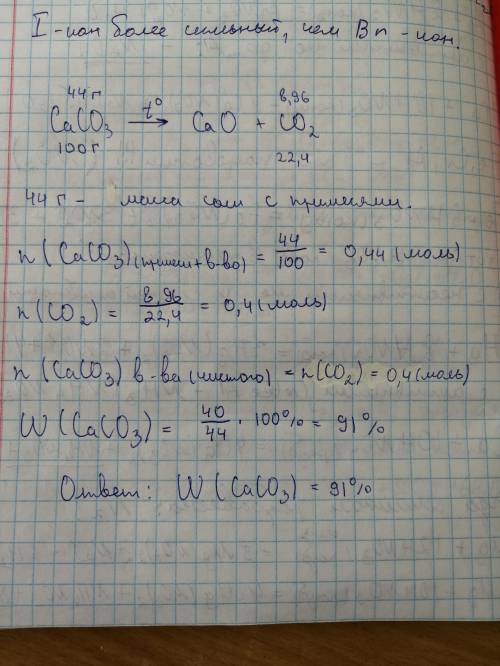 I-ион более сильный, чем Br-ион.
44 г 8,96
CaCO₃ t° → CaO + CO₂
100 г 22,4
44 г - масса соли с примесями.
n(CaCO₃)(примеси+в-во) = 44/100 = 0,44 (моль)
n(CO₂) = 8,96/22,4 = 0,4 (моль)
n(CaCO₃) в-ва (чистого) = n(CO₂) = 0,4 (моль)
W(CaCO₃) = 40/44 · 100% = 91%
Ответ: W(CaCO₃) = 91%